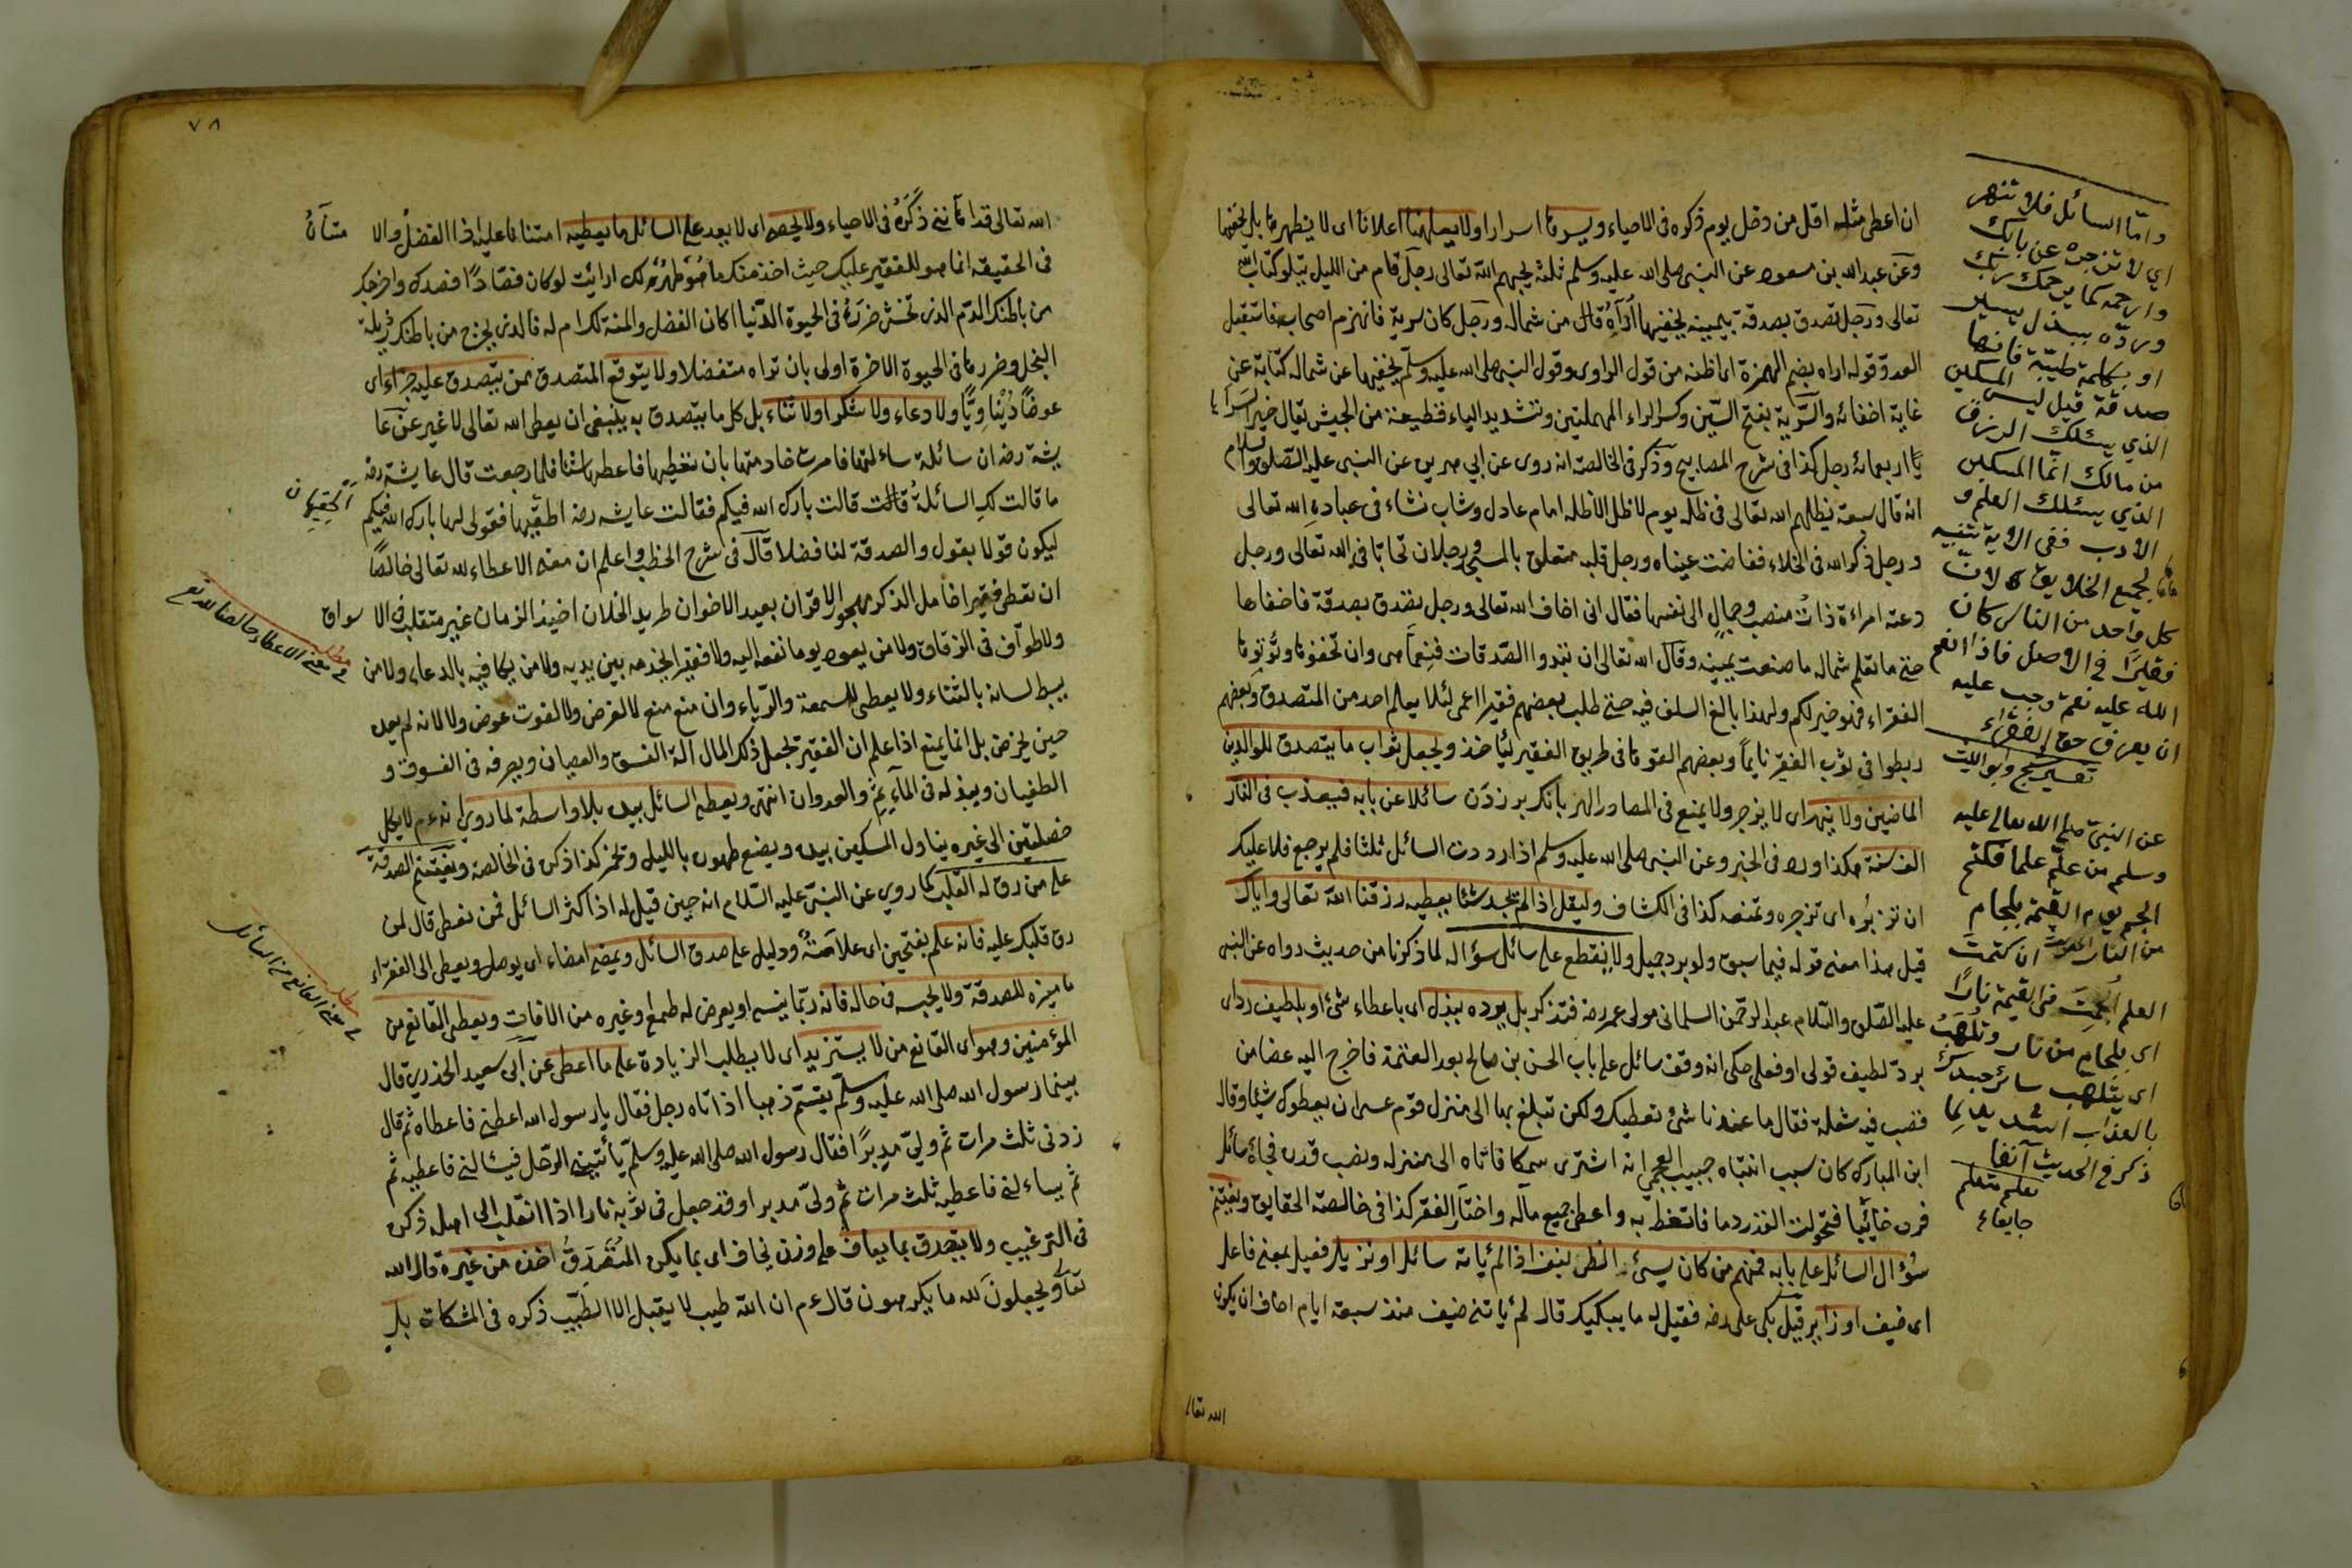 ان اعطى مثله اقل من دخل يوم ذكره فى الاحياء ويسرها اسرارا ولا يعلنها اعلانا اى لا يظهرها بل يخفيها
وعن عبد الله بن مسعود عن النبى صلى الله عليه وسلم ثلثة يحبهم الله تعالى رجل قام من الليل يتلو كتاب الله
تعالى ورجل تصدق بصدقة بيمينه يخفيها اُرَاه قال من شماله ورجل كان سرية فانهزم اصحابه فاستقبل
العدو قوله اراه بضم الهمزة اى اظنه من قول الراوى وقول النبى صلى الله عليه وسلم يخفيها عن شماله كناية عن
غاية اخفائه والسّرية بفتح السّين وكسر الراء المهملتين وتشديد الياء قطيعة من الجيش يقال خير السرايا
اربعمائة رجل كذا فى شرح المصابيح وذكر فى الخالصة انه روى عن ابي هريره عن النبى عليه الصّلوة والسلام
انه قال سبعة يظلهم الله تعالى فى ظله يوم لا ظل الا ظله امام عادل وشاب نشاء فى عبادة الله تعالى
ورجل ذكر الله فى الخلاء ففاضت عيناه ورجل قلبه متعلق بالمسجد ورجلان تحابا فى الله تعالى ورجل
دعته امراءة ذات منصب وجمال الى نفسها فقال انى اخاف الله تعالى ورجل تصدق بصدقة فاخفاها
حتى ما تعلم شماله ما صنعت يمينه وقال الله تعالى ان تبدوا الصّدقات فنعمّا هى وان تخفوها وتؤتوها
الفقراء فهو خير لكم ولهذا بالغ السلف فيه حتى طلب بعضهم فقيرا اعمى لئلا يعلم احد من المتصدق وبعضهم
ربطوا فى ثوب الفقير نايماً وبعضهم القوها فى طريق الفقير ليأخذ ويجعل ثواب ما يتصدق للوالدين
الماضين ولا ينهر اى لا يزجر ولا يمنع فى المصادر النهر بانك بر زدن سائلا عن بابه فيعذب فى النار
الف سنة هكذا ورد فى الخبر وعن النبى صلى الله عليه وسلم اذا رددت السائل ثلثا فلم يرجع فلا عليك
ان تزبره اى تزجره وتمنعه كذا فى الكشاف وليقل اذا لم يجد شئا يعطيه رزقنا الله تعالى واياك
قيل هذا معنى قوله فيما سبق ولو برد جميل ولا يقطع على سائل سؤاله لما ذكرنا من حديث رواه عن النبى
عليه الصّلوة والسّلام عبد الرحمن السلمانى مولى عمر رضه فتذكر بل يرده ببذل اى باعطاء شئ او بلطيف رد اى
برد لطيف قولى او فعلى حكى انه وقف سائل على باب الحسن بن صالح بعد العتمة فاخرج اليه عضا من
قصب فيه شعلة فقال ما عندنا شئ نعطيك ولكن تبلغ بها الى منزل قوم عسى ان يعطوك شيئا وقال
ابن المبارك كان سبب انتباه حبيب العجمى انه اشترى سمكا فاتاه الى منزله ونصب قدره فجاء سائل
فرده خائبا فتحولت القدر دما فاتعظ به واعطى جميع ماله واختار الفقر كذا فى خالصة الحقايق ويغتنم
سُؤال السائل على بابه فمنهم من كان يسئ الظن بنفسه اذا لم يأته سائل او نزيل فعيل بمعنى فاعل
اى ضيف او زاير قيل بكى على رضه فقيل له ما يبكيك قال لم يأتنى ضيف منذ سبعة ايام اخاف ان يكون
الله تعالى
وامّا السائل فلا تنهر
اي لا تزجره عن بابك
وارحمه كما يرحمك ربك
وردّه ببذل يسير
او بكلمة طيّبة فانها
صدقة قيل ليس المسكين
الذي يسئلك الرزق
من مالك انما المسكين
الذي يسئلك العلم و
الادب ففى الاية تنبيه
لجميع الخلايق لان
كل واحد من الناس كان
فقيرًا في الاصل فاذا انعم
الله عليه نعمة وجب عليه
ان يعرف حق الفقراء
تفسير وابو الليث
عن النبى صلى الله تعالى عليه
وسلم من علم علما فكتم
الجم يوم القيمة بلجام
من النار ان كتمت
العلم الجمت فى القيمة نارًا
اى بلجام من نار وتلهب
اى يتلهب سائر جسدك
بالعذاب الشديد لما
ذكر فى الحديث آنفا
٧٨
الله تعالى قد اهاننى ذكره فى الاحياء ولا يحصه اى لا يعد على السائل ما يعطيه امتنانا عليه اذ الفضل والامتنان
فى الحقيقه انما هو للفقير عليك حيث اخذ منك ما هو طهرة لك ارائيت لو كان فصّادًا فصدك واخرج
من باطنك الدّم الذى تخشى ضررَه فى الحيوة الدّنيا اكان الفضل والمنة لك ام له فالذى يخرج من باطنك رذيلة
البخل وضررها فى الحيوة الاخرة اولى بان تراه متفضلا ولا يتوقع المتصدق ممن يتصدق عليه جزاء اى
عوضًا دنياويًّا ولا دعاء ولا شكرا ولا ثناء بل كل ما يتصدق به ينبغى ان يعطى الله تعالى لا غير عن عا
يشة رضه ان سائلة سائلتها فامرت خادمتها بان تعطيها فاعطتها شئا فلما رجعت قال عايشة رضه
ما قالت لك السائلة قالت قالت بارك الله فيكم فقالت عايشه رضه الحقيها فقولى لها بارك الله فيكم
ليكون قولا بقول والصدقة لنا فضلا قال فى شرح الخطب واعلم ان معنى الاعطاء لله تعالى خالصًا
ان تعطى فقيرا خامل الذكر مهجور الاقران بعيد الاخوان طريد الخلان اخيذ الزمان غير متقلب فى الاسواق
ولا طوّاف فى الزقاق ولا من يعود يوما نفعه اليه ولا فقير الخدمه بين يديه ولا من يكافيه بالدعاء ولا من
يبسط لسانه بالثناء ولا يعطى للسمعة والرّياء وان منع منع لا لغرض ولا لفوت عوض ولا لانه لم يعده
حين يمرض بل انما يمنع اذا علم ان الفقير يجعل ذلك المال آلة الفسق والعصيان ويصرفه فى الفسوق و
الطغيان ويبذله فى المآثم والعدوان انتهى ويعطى السائل بيده بلا واسطة لما روى انه عم لا يكل
خصلتين الى غيره يناول المسكين بيده ويضع طهوره بالليل ويخمر كذا ذكره فى الخالصة ويغتنم الصدقة
على من رق له القلب كما روي عن النبىّ عليه السّلام انه حين قيل له اذا كثر السائل فمن نعطى قال لمن
رق قلبك عليه فانه علم بفتحتين اى علامة ودليل على صدق السائل ويمضى امضاء اى يوصل ويعطى الى الفقراء
ما ميزه للصدقة ولا يحبسه فى حاله فانه ربّما ينسى او يعرض له طمع وغيره من الافات ويعطى القانع من
المؤمنين وهو اى القانع من لا يستزيد اى لا يطلب الزيادة على ما اعطى عن ابى سعيد الخدرى قال
بينما رسول الله صلى الله عليه وسلّم يقسّم ذهبا اذ اتاه رجل فقال يا رسول الله اعطنى فاعطاه ثم قال
زدنى ثلث مرات ثم ولىّ مدبرًا فقال رسول الله صلى الله عليه وسلّم يأتينى الرّجل فيسئالنى فاعطيه ثم
ثم يساءلنى فاعطيه ثلث مرات ثم ولىّ مدبرا وقد جعل فى ثوبه نارا اذا انقلب الى اهله ذكره
فى الترغيب ولا يتصدق بما يعاف على وزن يخاف اى بما يكره المُتَصَدِّق اخذه من غيره قال الله
تعالى ويجعلون لله ما يكرهون قال عم ان الله طيب لا يقبل الا الطيّب ذكره فى المشكاة بل
مطلب
معنى الاعطاء خالصا لله تع
مطلب
معنى القانع من السائل